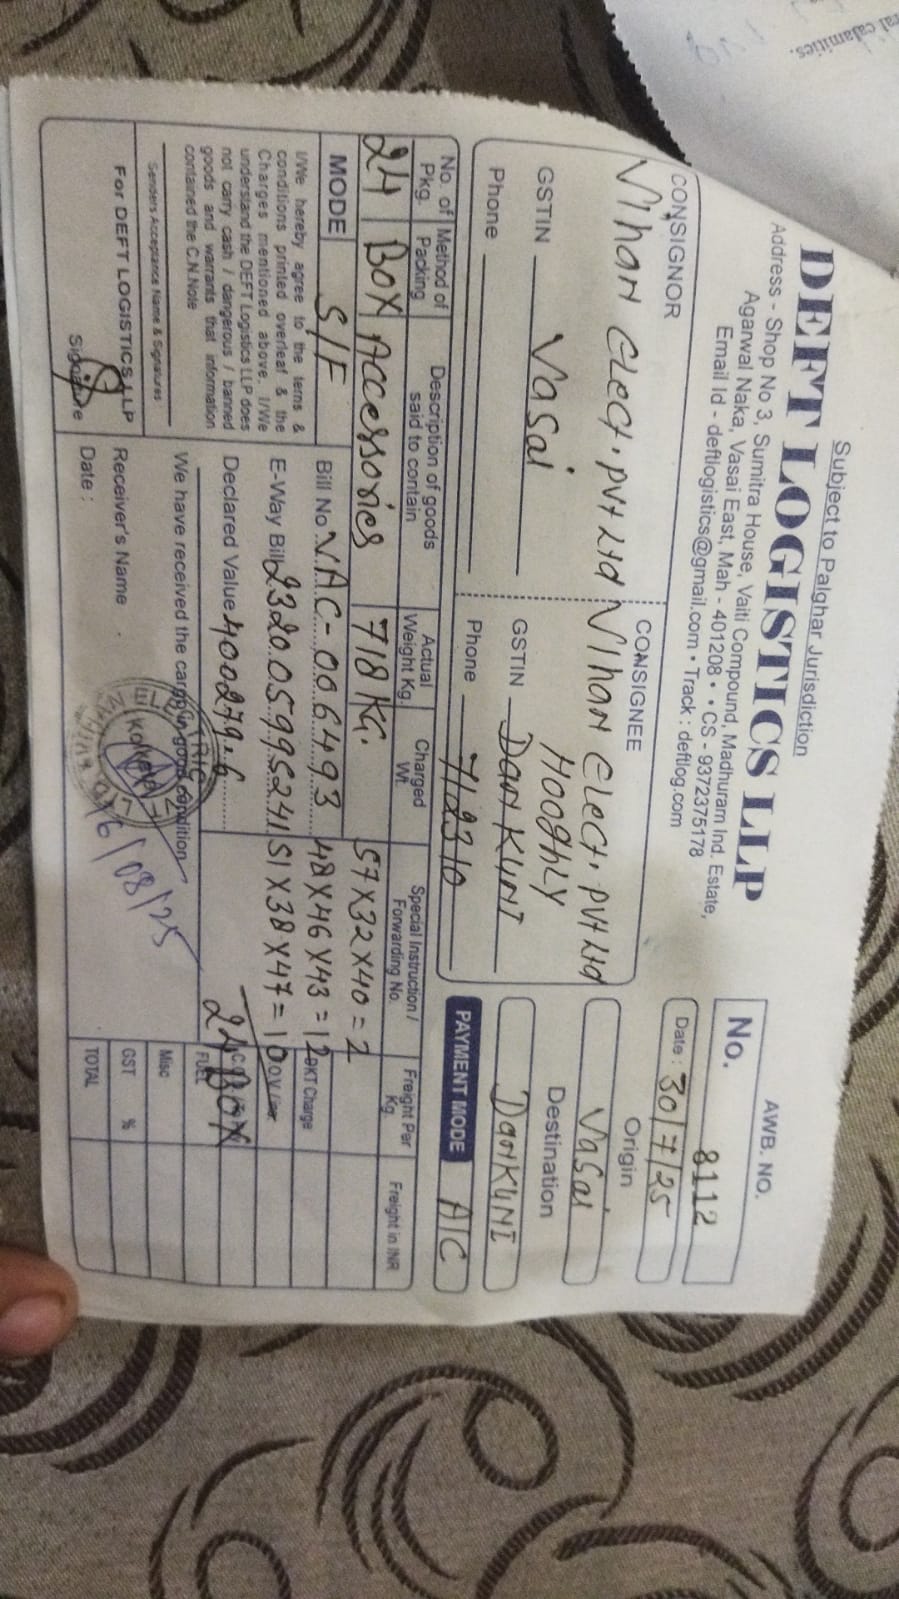 ral calamities.
Subject to Palghar Jurisdiction
DEFT LOGISTICS LLP
Address - Shop No 3, Sumitra House, Vaiti Compound, Madhuram Ind. Estate,
Agarwal Naka, Vasai East, Mah - 401208 • • CS - 9372375178
Email Id - deftlogistics@gmail.com • Track : deftlog.com
AWB. NO.
No. 8112
Date : 30/7/25
CONSIGNOR
Vihan Elect. Pvt Ltd
Vasai
GSTIN
Phone
CONSIGNEE
Vihan Elect. Pvt Ltd
HOOGHLY
GSTIN DANKUNI
Phone 712310
Origin
Vasai
Destination
DANKUNI
PAYMENT MODE A/C
No. of Pkg.
Method of Packing
Description of goods said to contain
Actual Weight Kg.
Charged Wt.
Special Instruction / Forwarding No.
Freight Per Kg.
Freight in INR
24 BOX Accessories 718 KG.
57X32X40=2
48X46X43=12
51X38X47=10
24 BOX
MODE S/F
Bill No. VAC-006493
E-Way Bill 232005995241
Declared Value 400279.6
DKT Charge
FUEL
Misc
GST %
TOTAL
I/We hereby agree to the terms &
conditions printed overleaf & the
Charges mentioned above. I/We
understand the DEFT Logistics LLP does
not carry cash / dangerous / banned
goods and warrants that information
contained the C.N.Note
Senders Acceptance Name & Signatures
For DEFT LOGISTICS LLP
Signature
We have received the cargo in good condition
Receiver's Name
Date :